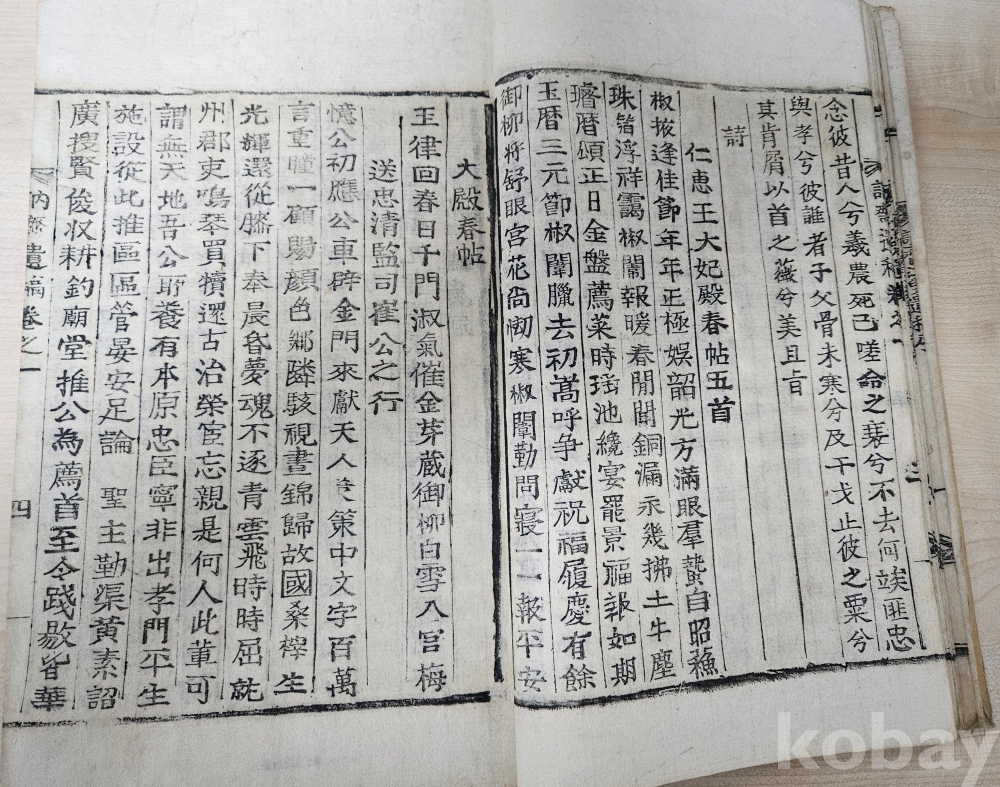 念彼昔人兮羲農死已嗟命之衰兮不去何竢匪忠
與孝兮彼誰者子父骨未寒兮及干戈止彼之粟兮
其肯屑以首之薇兮美且旨
詩
仁惠王大妃殿春帖五首
椒掖逢佳節年年正極娛韶光方滿眼羣蟄自昭蘇
珠箔浮祥靄椒闈報暖春閒聞銅漏永幾拂土牛塵
璿曆頌正日金盤薦菜時瑤池纔宴罷景福報如期
玉曆三元節椒闈臘去初嵩呼争獻祝福履慶有餘
御柳將舒眼宮花尙㓒寒椒闈勤問寢一一報平安
大殿春帖
玉律回春日千門淑氣催金芽葳御柳白雪入宮梅
送忠清監司崔公之行
憶公初應公車辟金門來獻天人策策中文字百萬
言重瞳一顧賜顏色鄉隣駭視晝錦歸故國桑梓生
光輝還從膝下奉晨昏夢魂不逐青雲飛時時屈就
州郡吏鳴琴買犢還古治榮宦忘親是何人此輩可
謂無天地吾公所養有本原忠臣寧非出孝門平生
施設從此推區區管晏安足論 聖主勤渠黃素詔
廣搜賢俊収耕釣廟堂推公為薦首至今踐敭皆華
訥齋遺稿卷之一
四
kobay